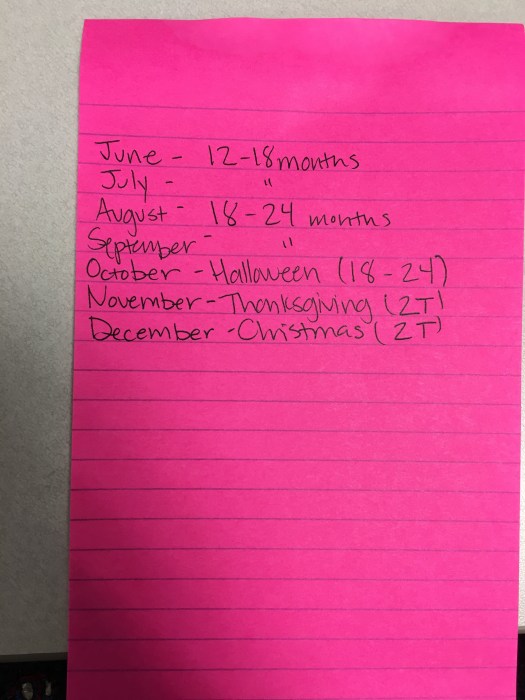 June - 12-18 months
July - "
August - 18-24 months
September - "
October - Halloween (18-24)
November - Thanksgiving (2T)
December - Christmas (2T)